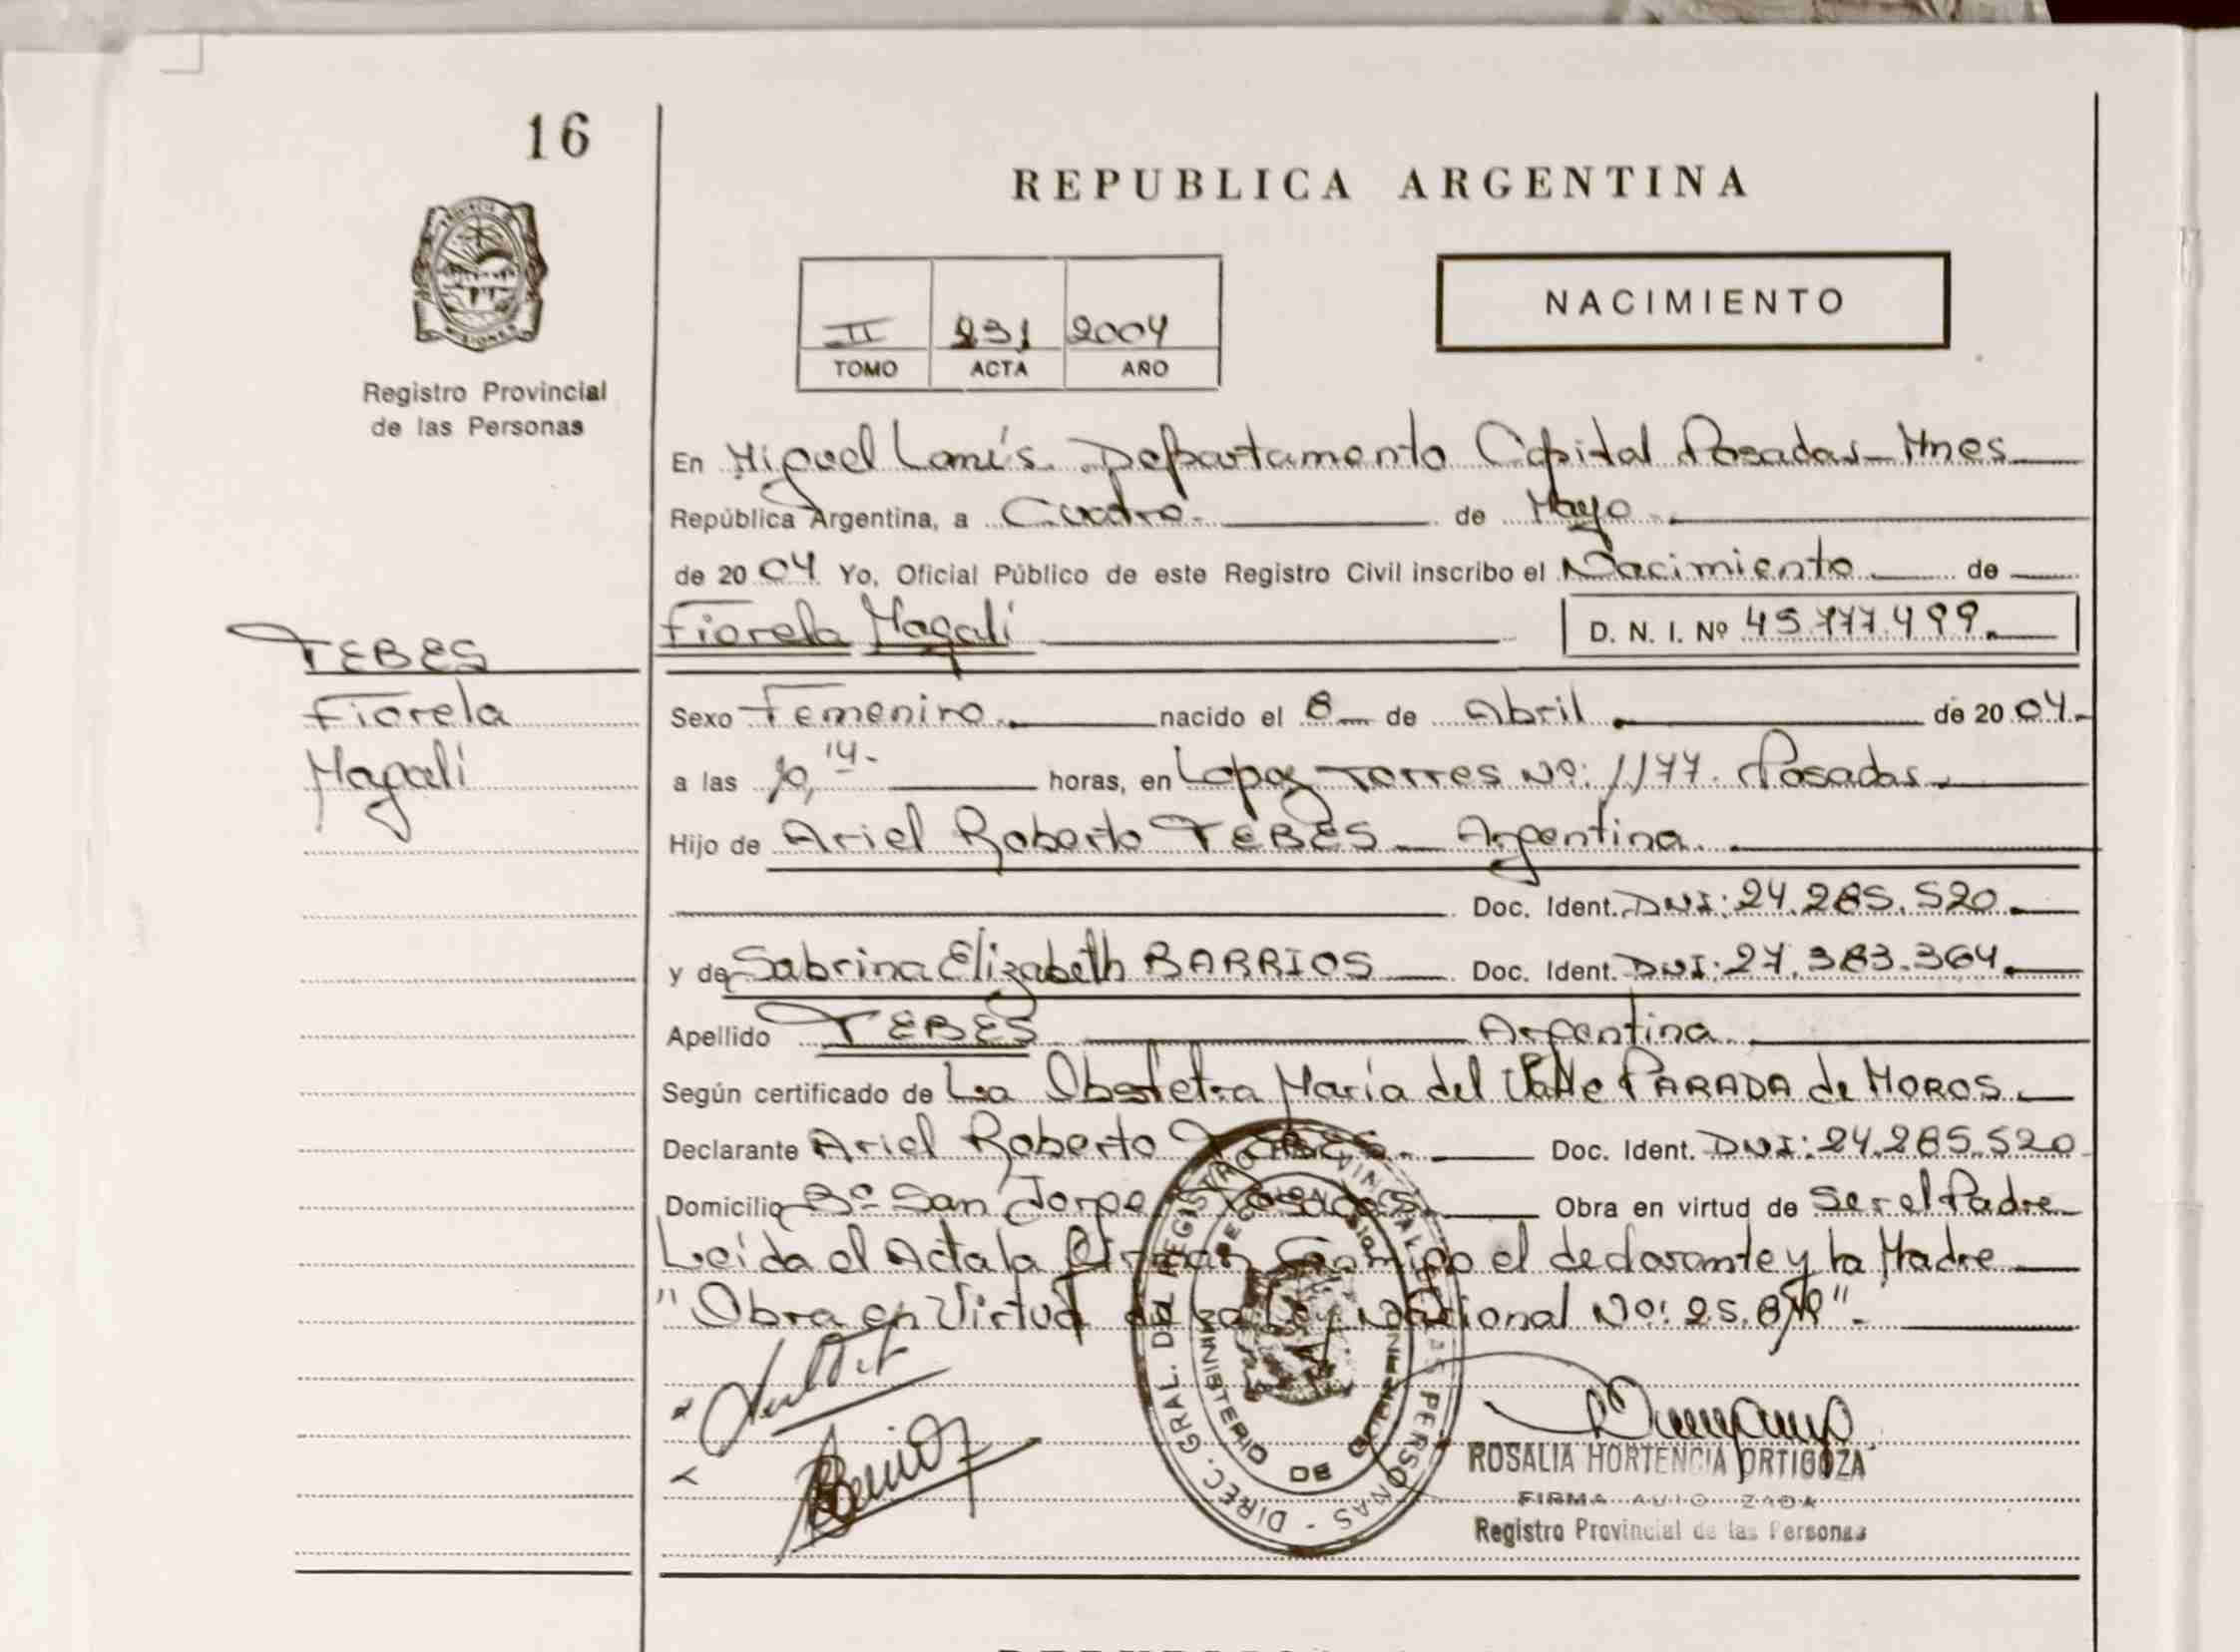 16
REPUBLICA ARGENTINA
NACIMIENTO
II 231 2004
TOMO ACTA AÑO
Registro Provincial
de las Personas
En Miguel Lanús. Departamento Capital Posadas - Mnes
República Argentina, a Cuatro. de Mayo
de 2004 Yo, Oficial Público de este Registro Civil inscribo el Nacimiento de
Fiorela Magali D. N. I. Nº 45.777.499.
TEBES
Fiorela
Magali
Sexo Femenino. nacido el 8 de Abril. de 2004.-
a las 10,14.- horas, en Lopez Torres Nº: 1177. Posadas.
Hijo de Ariel Roberto TEBES - Argentina.
Doc. Ident. DNI: 24.285.520.
y de Sabrina Elizabeth BARRIOS Doc. Ident. DNI: 27.383.364.
Apellido TEBES Argentina.
Según certificado de La Obstetra María del Valle PARADA de MOROS.
Declarante Ariel Roberto TEBES. Doc. Ident. DNI: 24.285.520
Domicilio Bº San Jorge Posadas. Obra en virtud de Ser el Padre
Leída el Acta la Firman Conmigo el declarante y la Madre
"Obra en Virtud de la Ley Nacional Nº: 25.819".
DIREC. GRAL. DEL REGISTRO PROVINCIAL DE LAS PERSONAS
MINISTERIO DE GOBIERNO
ROSALIA HORTENCIA ORTIGOZA
FIRMA AUTORIZADA
Registro Provincial de las Personas